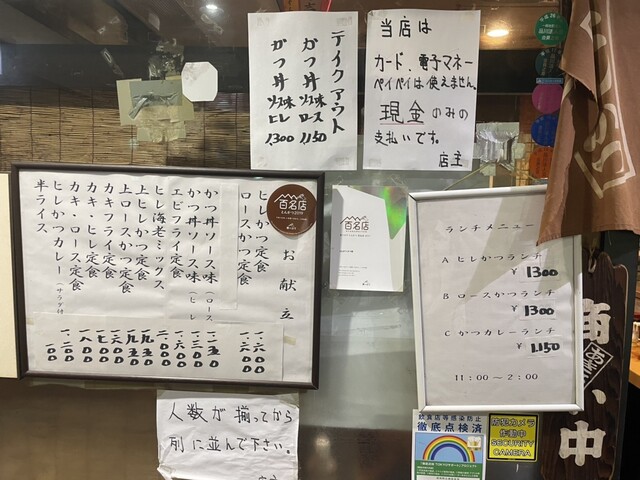 テイクアウト
かつ丼 ソース味 ロース 1150
かつ丼 ソース味 ヒレ 1300
当店は
カード、電子マネー
ペイペイは使えません。
現金のみの
支払いです。
店主
百名店
お献立
ヒレかつ定食
ロースかつ定食
かつ丼ソース味(ロース
かつ丼ソース味(ヒレ
エビフライ定食
ヒレ海老ミックス
上ヒレかつ定食
上ロースかつ定食
カキフライ定食
カキ・ヒレ定食
カキ・ロース定食
ヒレかつカレー(サラダ付
半ライス
百名店
ランチメニュー
A ヒレかつランチ
¥ 1300
B ロースかつランチ
¥ 1300
C かつカレーランチ
¥ 1,150
11:00~2:00
人数が揃ってから
列に並んで下さい。
店主
飲食店等感染防止
徹底点検済
防犯カメラ
作動中
SECURITY
CAMERA
中